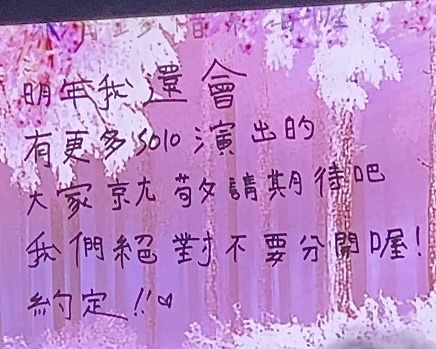 明年我還會
有更多solo演出的
大家就敬請期待吧
我們絕對不要分開喔!
約定!!♡